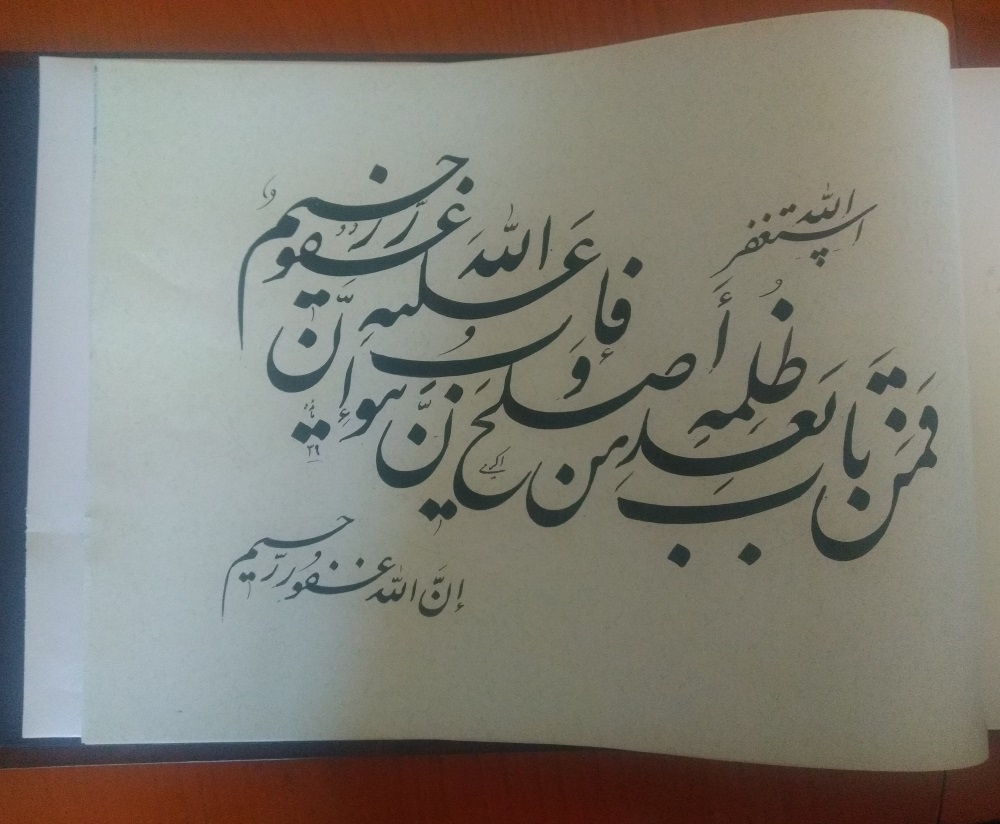 استغفر الله
فَمَن تابَ مِن بَعدِ ظُلمِهِ وَ أَصلَحَ فَإِنَّ اللهَ یَتوبُ عَلَیهِ إِنَّ غَفورٌ رَّحیمٌ
مائده ۳۹
إنَّ الله غفورٌ رَّحیم